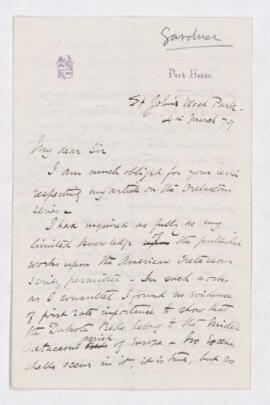 Gardner
Park House.
St John's Wood Park.
4th March 79
My dear Sir
I am much obliged for your
respecting my article on the Cretaceous
series.
I had inquired as fully as my
limited knowledge the published
works upon the American Cretaceous
Series permitted. In such works
as I consulted I found no evidence
of first rate importance to show that
the Dakota Beds belong to the Middle
Cretaceous period of Europe. No Eocene
shells occur in it, it is true, but no